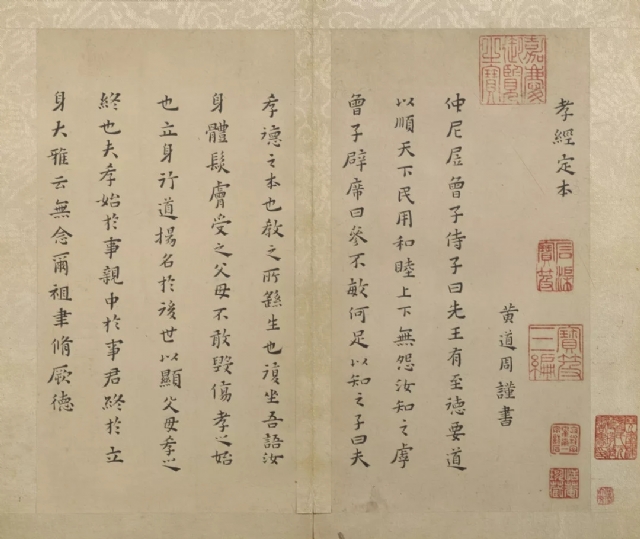 孝經定本
黃道周謹書
仲尼凥曾子侍子曰先王有至德要道
以順天下民用和睦上下無怨汝知之虖
曾子辟席曰參不敏何足以知之子曰夫
孝德之本也教之所繇生也復坐吾語汝
身體髮膚受之父母不敢毀傷孝之始
也立身行道揚名於後世以顯父母孝之
終也夫孝始於事親中於事君終於立
身大雅云無念爾祖聿脩厥德
嘉慶御覽之寶
寶笈三編